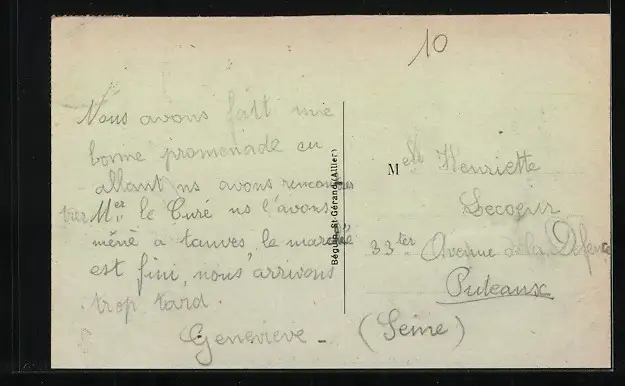 10
Nous avons fait une
bonne promenade en
allant ns avons rencon
trer Mer le Curé ns l'avons
mêné a tauves le marché
est fini, nous arrivons
trop tard.
Genevieve -
Béguin, St-Gérand (Allier)
Melle Henriette
Lecoeur
33ter Avenue de la Défense
Puteaux
(Seine)